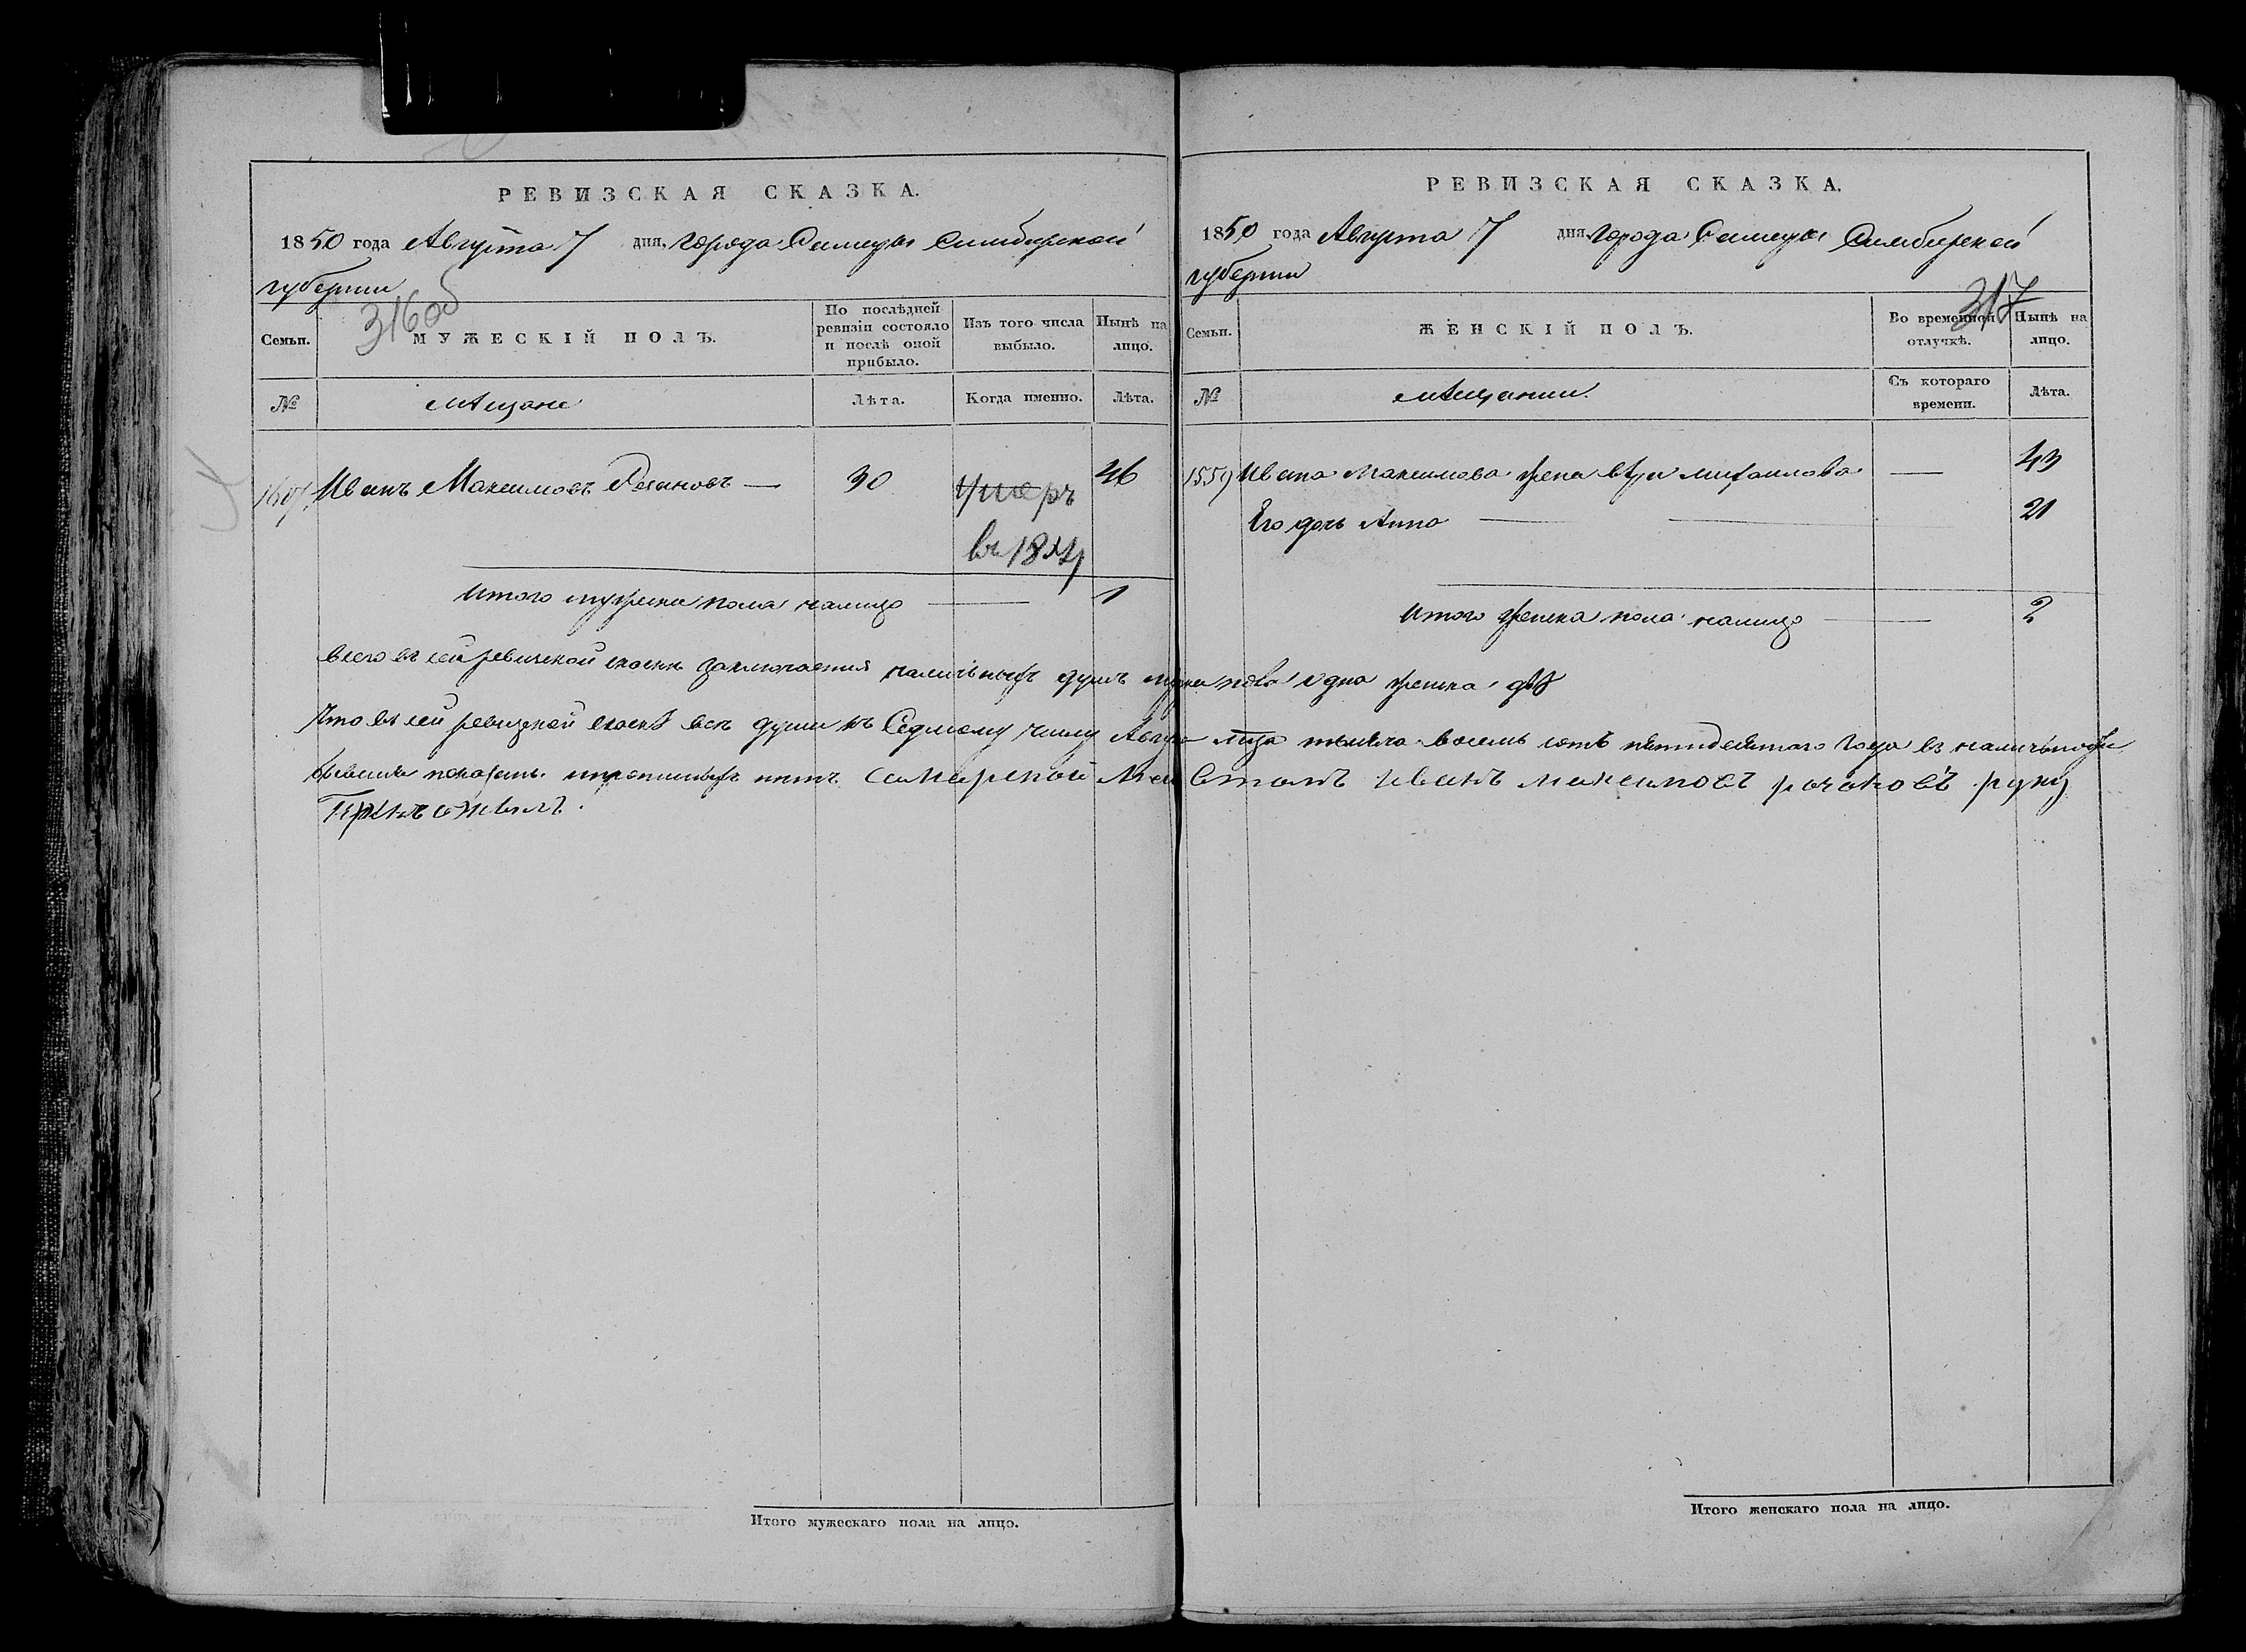 РЕВИЗСКАЯ СКАЗКА.
1850 года Августа 7 дня, города Самары Симбирской
губернии
316об
Семьи.
МУЖЕСКІЙ ПОЛЪ.
По послѣдней ревизіи состояло и послѣ оной прибыло.
Изъ того числа выбыло.
Нынѣ на лицо.
№
мѣщане
Лѣта.
Когда именно.
Лѣта.
Иванъ Максимовъ 30 умеръ 46
въ
Итого мужеска пола налицо 1
РЕВИЗСКАЯ СКАЗКА.
1850 года Августа 7 дня города Самары Симбирской
губернии
317
Семьи.
ЖЕНСКІЙ ПОЛЪ.
Во временной отлучкѣ.
Нынѣ на лицо.
№
мѣщанки.
Съ котораго времени.
Лѣта.
1559 Ивана Максимова жена вѣра михаилова 43
Его дочь Анна 21
Итого женска пола налицо 2
всего въ сей ревиской скаскѣ заключается наличныхъ душъ мужска пола одна женска двѣ
Что въ сей ревизкой скаскѣ всѣ души къ Седмому числу Августа мца тысяча восемь сотъ пятидесятаго года въ наличности
показаны и прописныхъ нѣтъ самарской Иванъ максимовъ руку
приложилъ.
Итого мужескаго пола на лицо.
Итого женскаго пола на лицо.